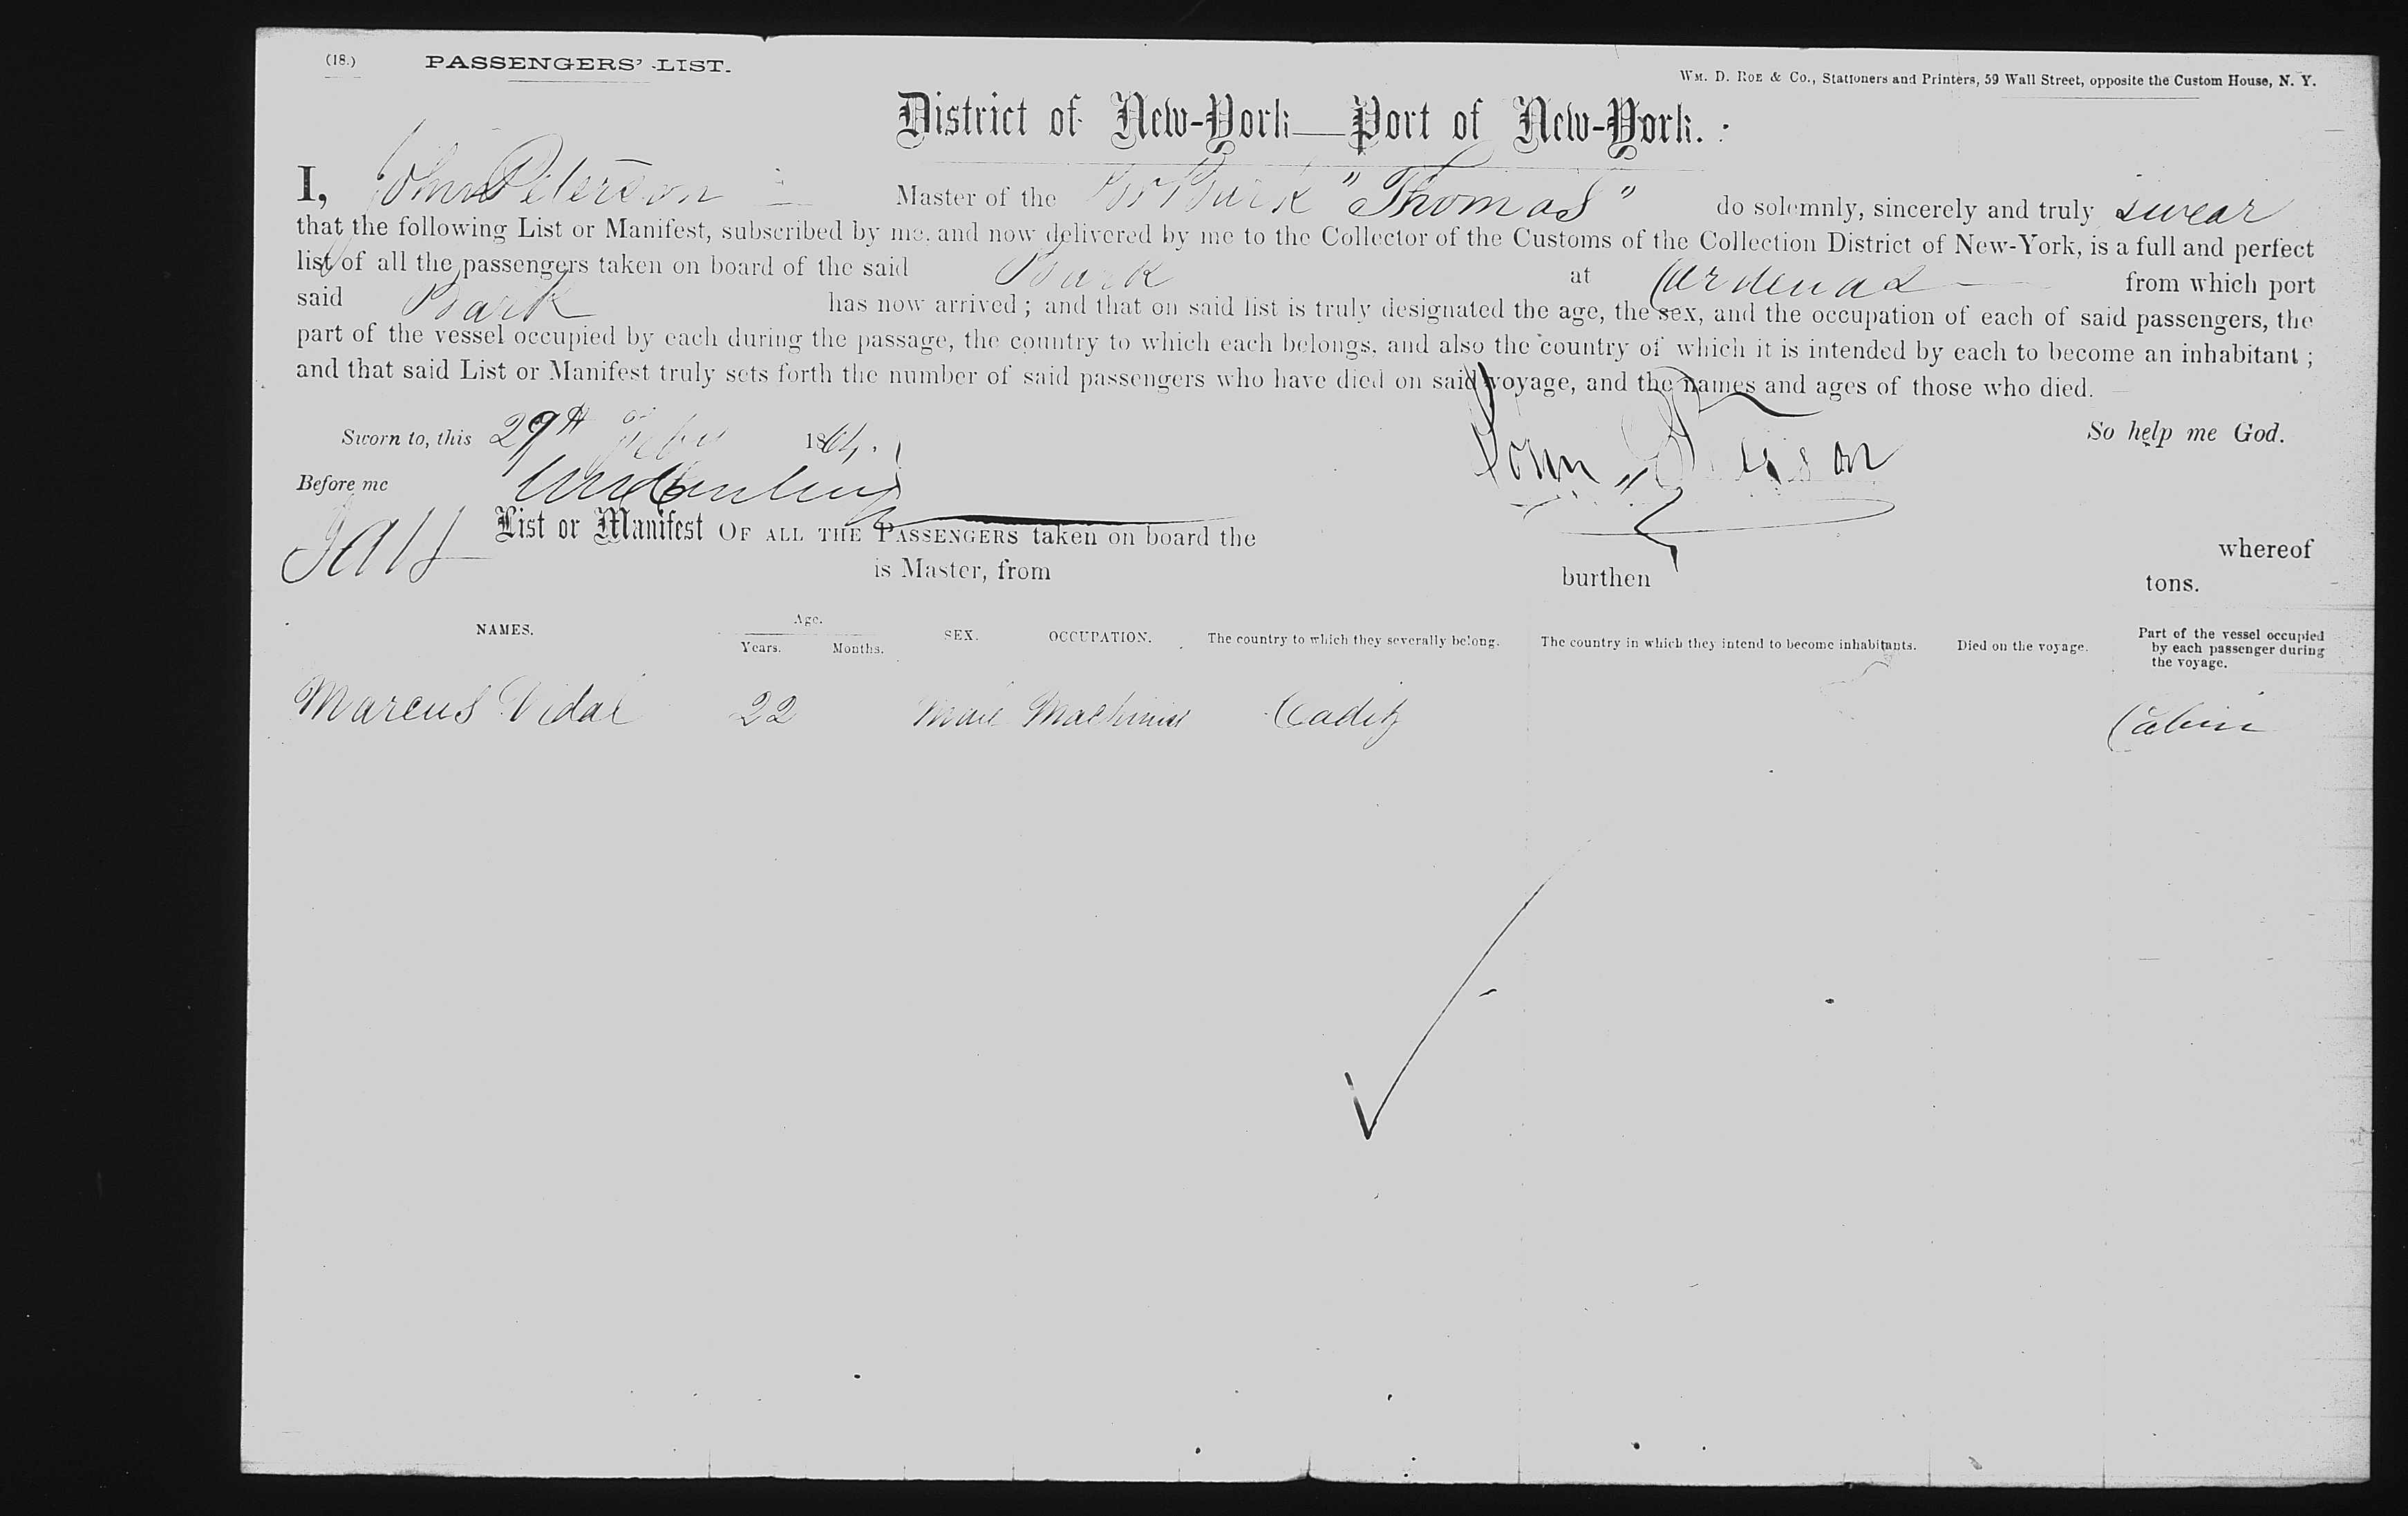 (18.) PASSENGERS' LIST.
WM. D. ROE & Co., Stationers and Printers, 59 Wall Street, opposite the Custom House, N. Y.
District of New-York—Port of New-York.
I, John Peterson Master of the Br Bark "Thomas" do solemnly, sincerely and truly swear
that the following List or Manifest, subscribed by me, and now delivered by me to the Collector of the Customs of the Collection District of New-York, is a full and perfect
list of all the passengers taken on board of the said Bark at Cardenas from which port
said Bark has now arrived; and that on said list is truly designated the age, the sex, and the occupation of each of said passengers, the
part of the vessel occupied by each during the passage, the country to which each belongs, and also the country of which it is intended by each to become an inhabitant;
and that said List or Manifest truly sets forth the number of said passengers who have died on said voyage, and the names and ages of those who died.
Sworn to, this 29th Feby 1864. John Peterson So help me God.
Before me
List or Manifest OF ALL THE PASSENGERS taken on board the whereof
is Master, from burthen tons.
NAMES. Age. Years. Months. SEX. OCCUPATION. The country to which they severally belong. The country in which they intend to become inhabitants. Died on the voyage. Part of the vessel occupied by each passenger during the voyage.
Marcus Vidal 22 Male Machinist Cadiz Cabin